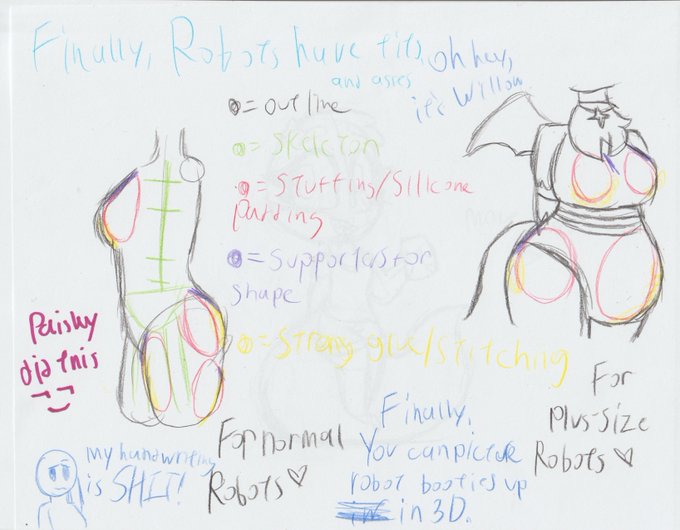 Finally, Robots have tits,
and asses
oh hey,
it's Willow
= outline
= Skeleton
= Stuffing/Silicone
Padding
= Supporters for
shape
= Strong glue/Stitching
Paisley
did this
my handwriting
is SHIT!
For normal
Robots
Finally,
You can picture
robot booties up
in 3D.
For
Plus-Size
Robots